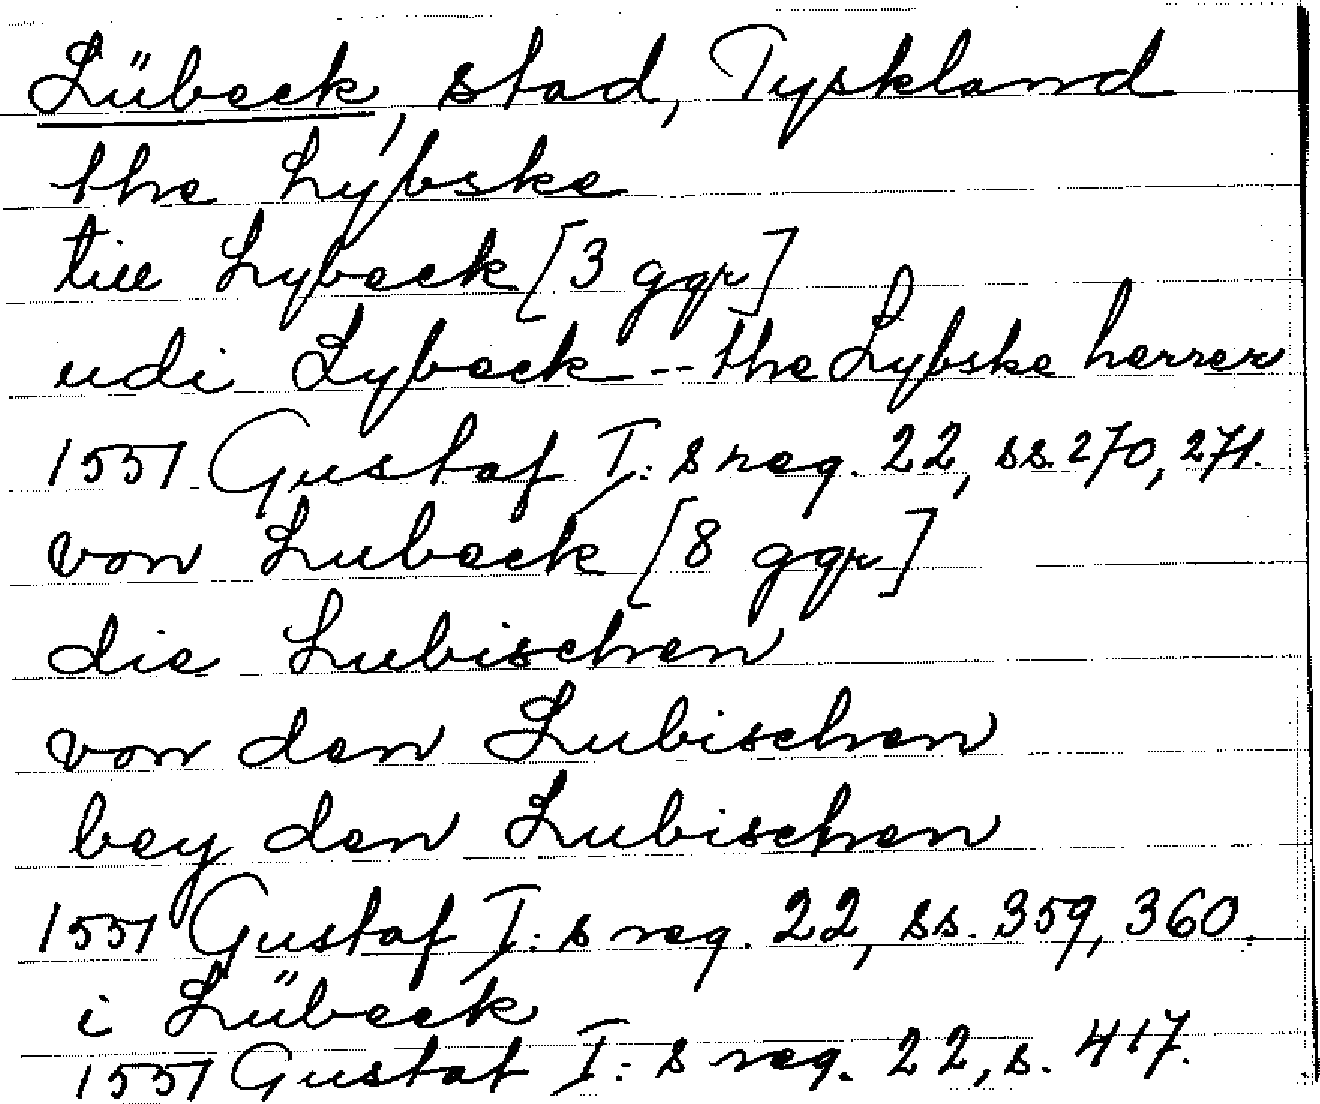 Lübeck, stad, Tyskland
the Lybske
till Lybeck [3 ggr]
udi Lybeck -- the Lybske herrer
1551 Gustaf I:s reg. 22, ss. 270, 271.
von Lubeck [8 ggr]
die Lubischen
von den Lubischen
bey den Lubischen
1551 Gustaf I:s reg. 22, ss. 359, 360.
i Lübeck
1551 Gustaf I:s reg. 22, s. 417.